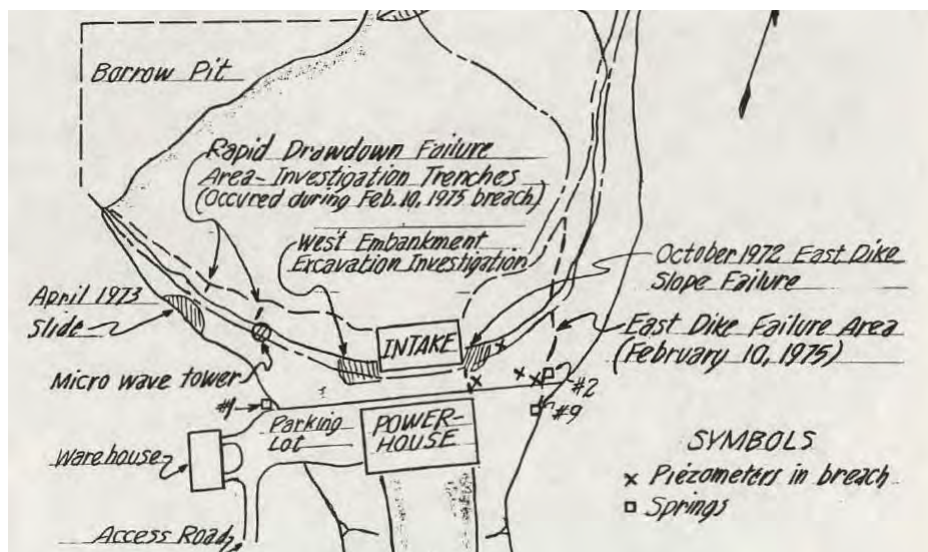 Borrow Pit
Rapid Drawdown Failure
Area-Investigation Trenches
(Occured during Feb. 10, 1975 breach)
West Embankment
Excavation Investigation
October 1972 East Dike
Slope Failure
April 1973
Slide
INTAKE
East Dike Failure Area
(February 10, 1975)
Micro wave tower
#2
#1
#9
Parking
Lot
POWER-
HOUSE
SYMBOLS
Warehouse
x Piezometers in breach
□ Springs
Access Road